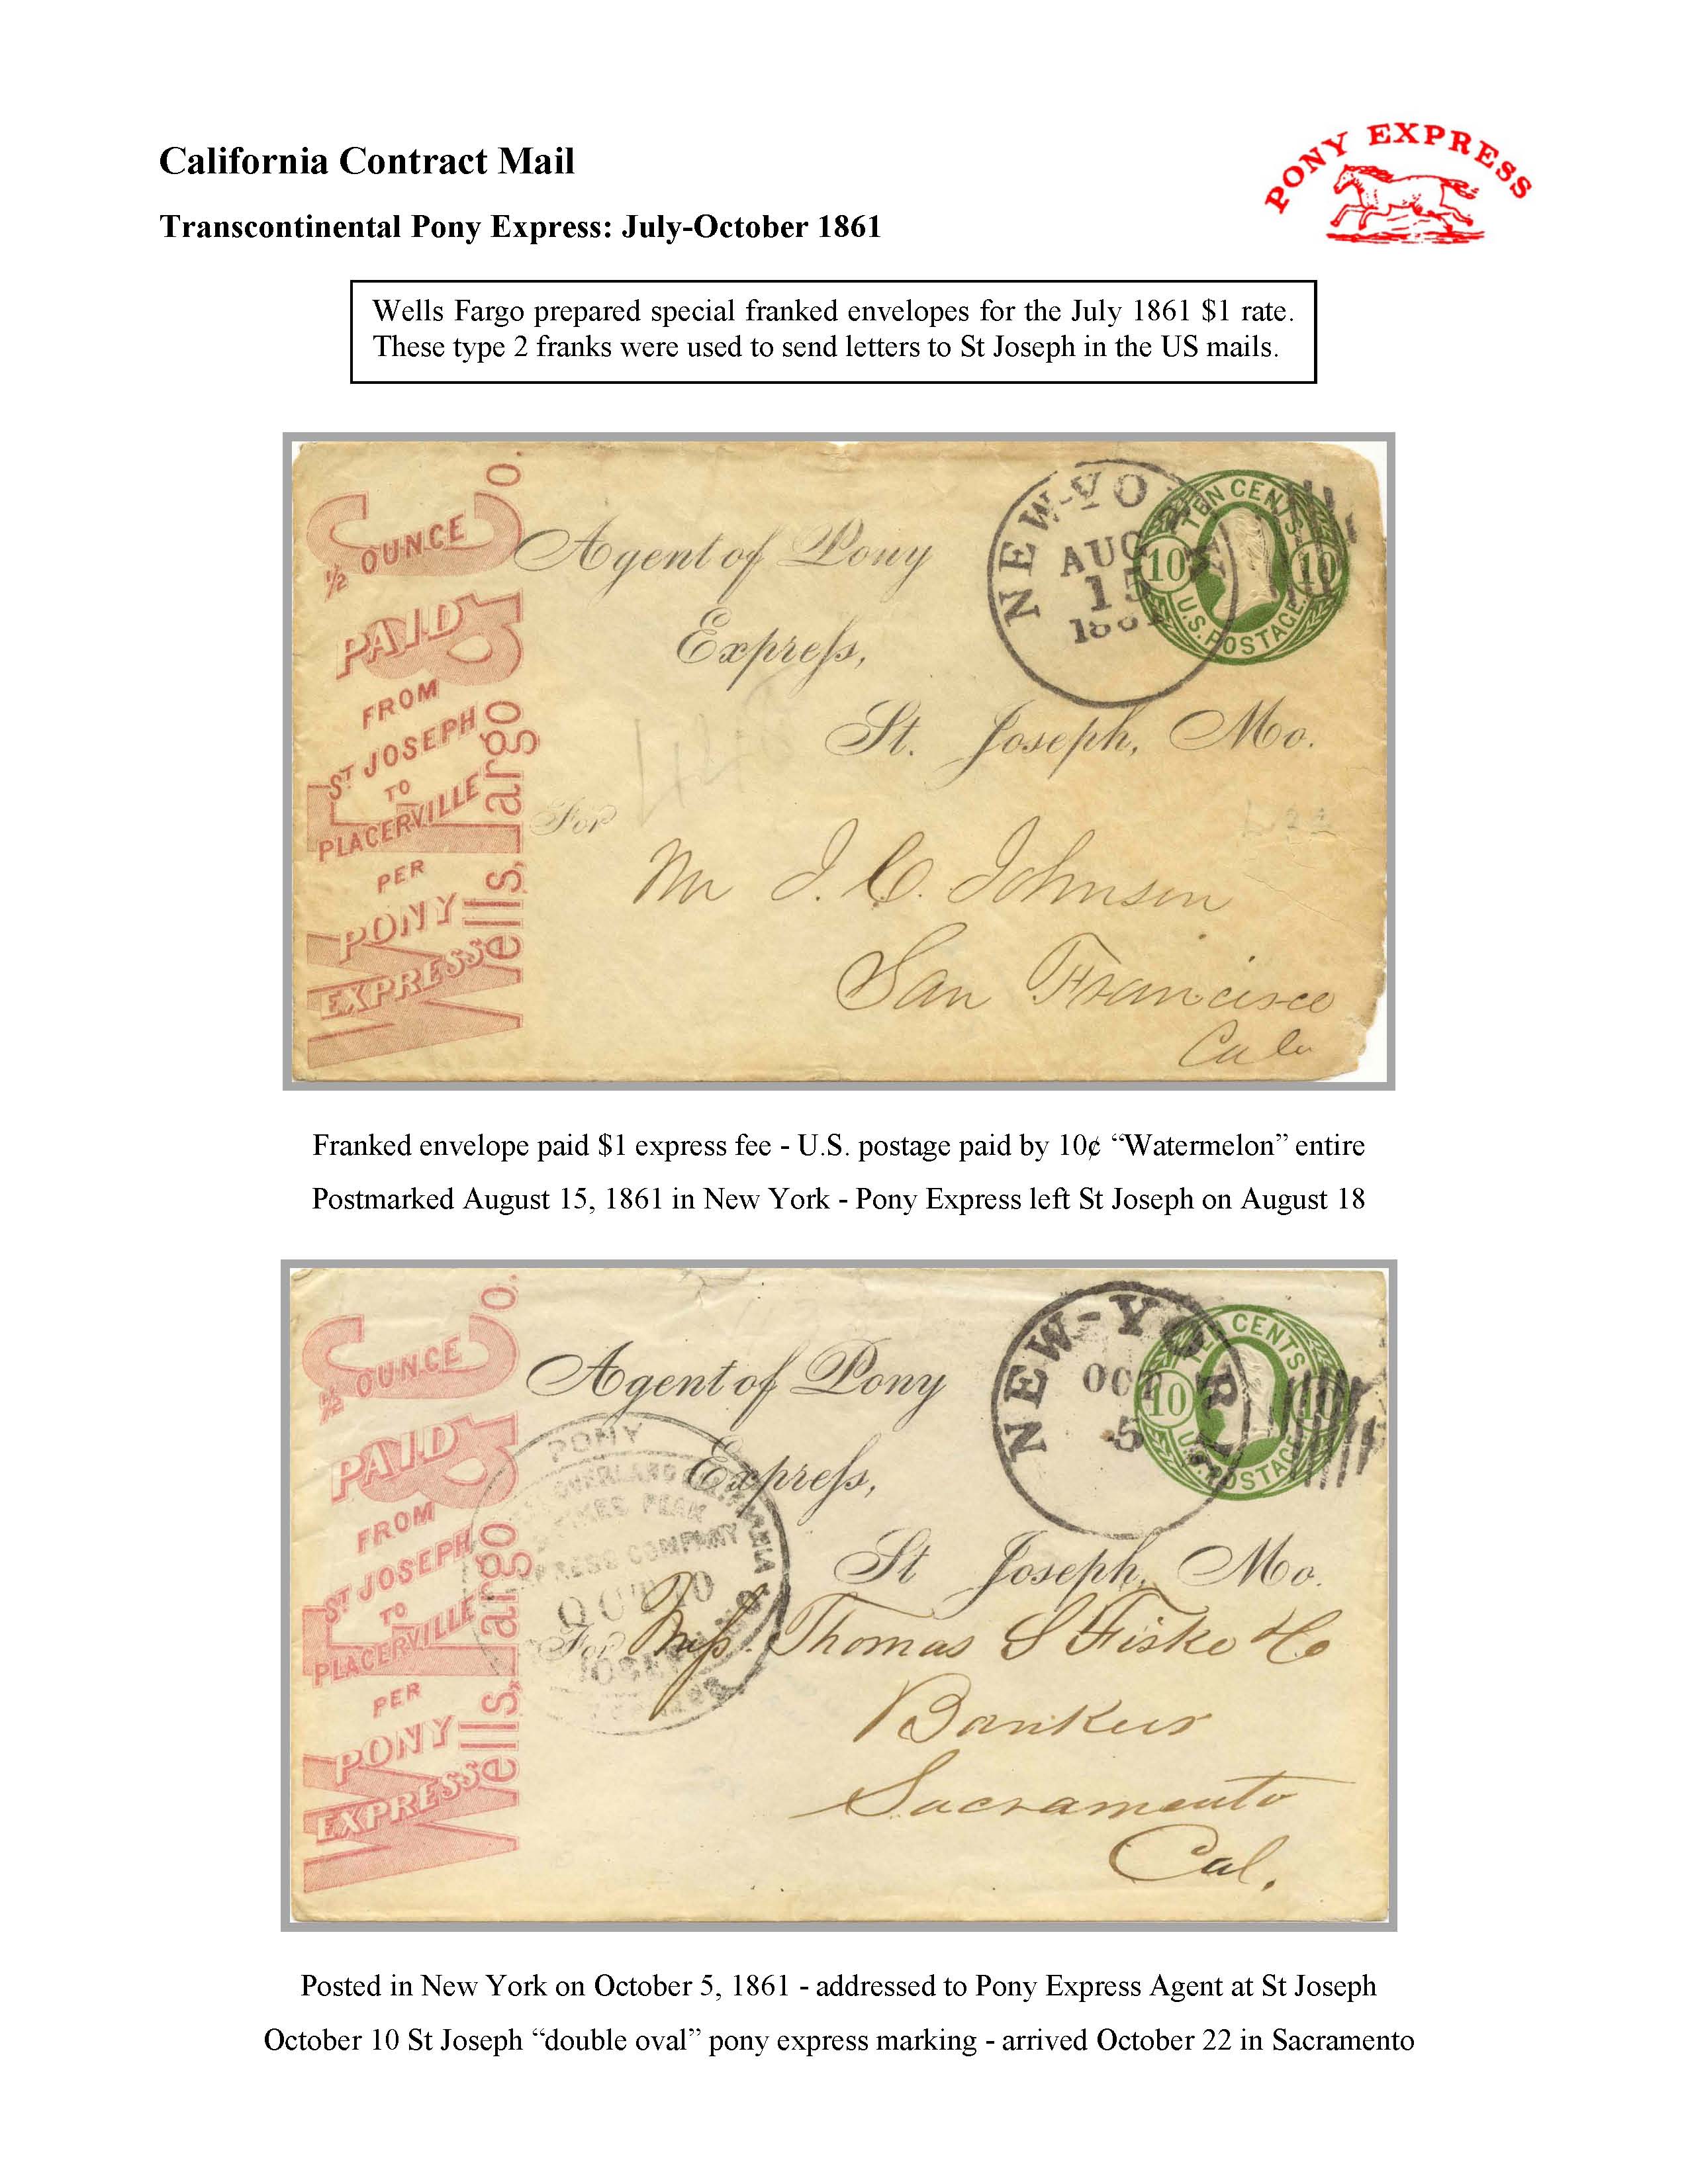 California Contract Mail
PONY EXPRESS
Transcontinental Pony Express: July-October 1861
Wells Fargo prepared special franked envelopes for the July 1861 $1 rate.
These type 2 franks were used to send letters to St Joseph in the US mails.
Wells, Fargo & Co.
½ OUNCE
PAID
FROM
ST JOSEPH
TO
PLACERVILLE
PER
PONY
EXPRESS
NEW-YO
AUG
15
TEN CENTS
10 10
U.S. POSTAGE
Agent of Pony
Express,
St. Joseph, Mo.
For
Mr J. C. Johnson
San Francisco
Cala
Franked envelope paid $1 express fee - U.S. postage paid by 10¢ “Watermelon” entire
Postmarked August 15, 1861 in New York - Pony Express left St Joseph on August 18
Wells, Fargo & Co.
½ OUNCE
PAID
FROM
ST JOSEPH
TO
PLACERVILLE
PER
PONY
EXPRESS
NEW-YORK
OCT
5
CENTS
10 10
U.S. POSTAGE
Agent of Pony
Express,
St Joseph, Mo.
PONY
OVERLAND CALIFORNIA
PIKES PEAK
EXPRESS COMPANY
OCT 10
JOSEPH
For Mess. Thomas S Fiske & Co
Bankers
Sacramento
Cal.
Posted in New York on October 5, 1861 - addressed to Pony Express Agent at St Joseph
October 10 St Joseph “double oval” pony express marking - arrived October 22 in Sacramento